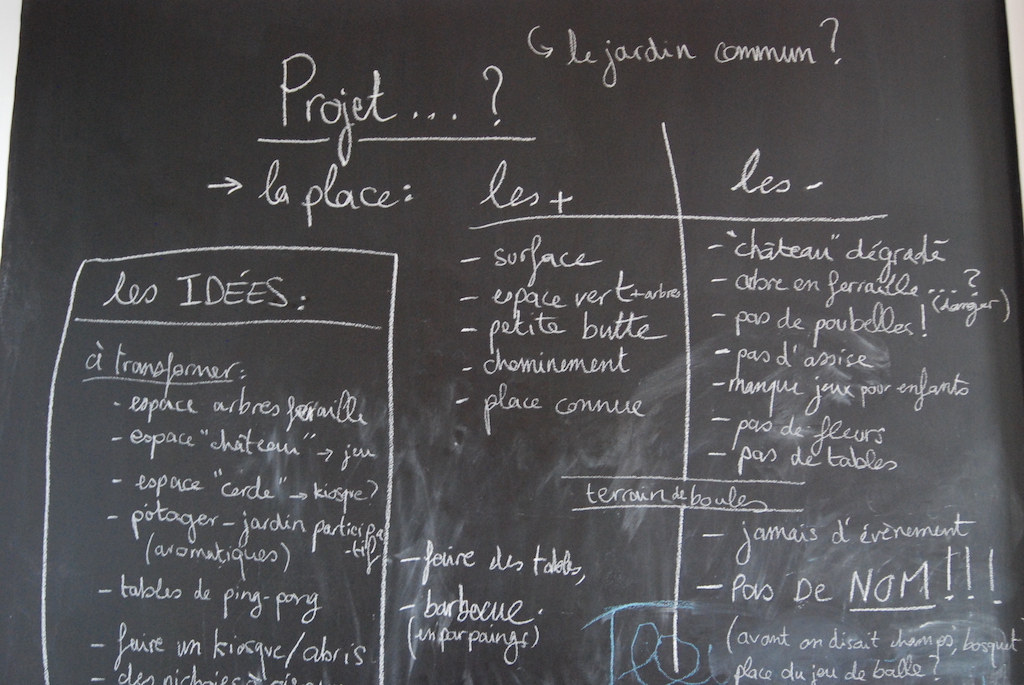 ↳ le jardin commun ?
Projet .... ?
→ la place :
les +
- surface
- espace vert + arbres
- petite butte
- cheminement
- place connue
les -
- "château" dégradé
- arbre en ferraille .... ?
(danger)
- pas de poubelles !
- pas d'assise
- manque jeux pour enfants
- pas de fleurs
- pas de tables
terrain de boules
- jamais d'évènement
- PAS DE NOM !!!
(avant on disait champs, bosquet
place du jeu de balle ?
les IDÉES :
à transformer :
- espace arbres ferraille
- espace "château" → jeu
- espace "cercle" → kiosque ?
- potager - jardin participa
-tif
(aromatiques)
- tables de ping-pong
- faire un kiosque / abris
- des nichoirs à
- faire des tables,
- barbecue.
(en parpaings)